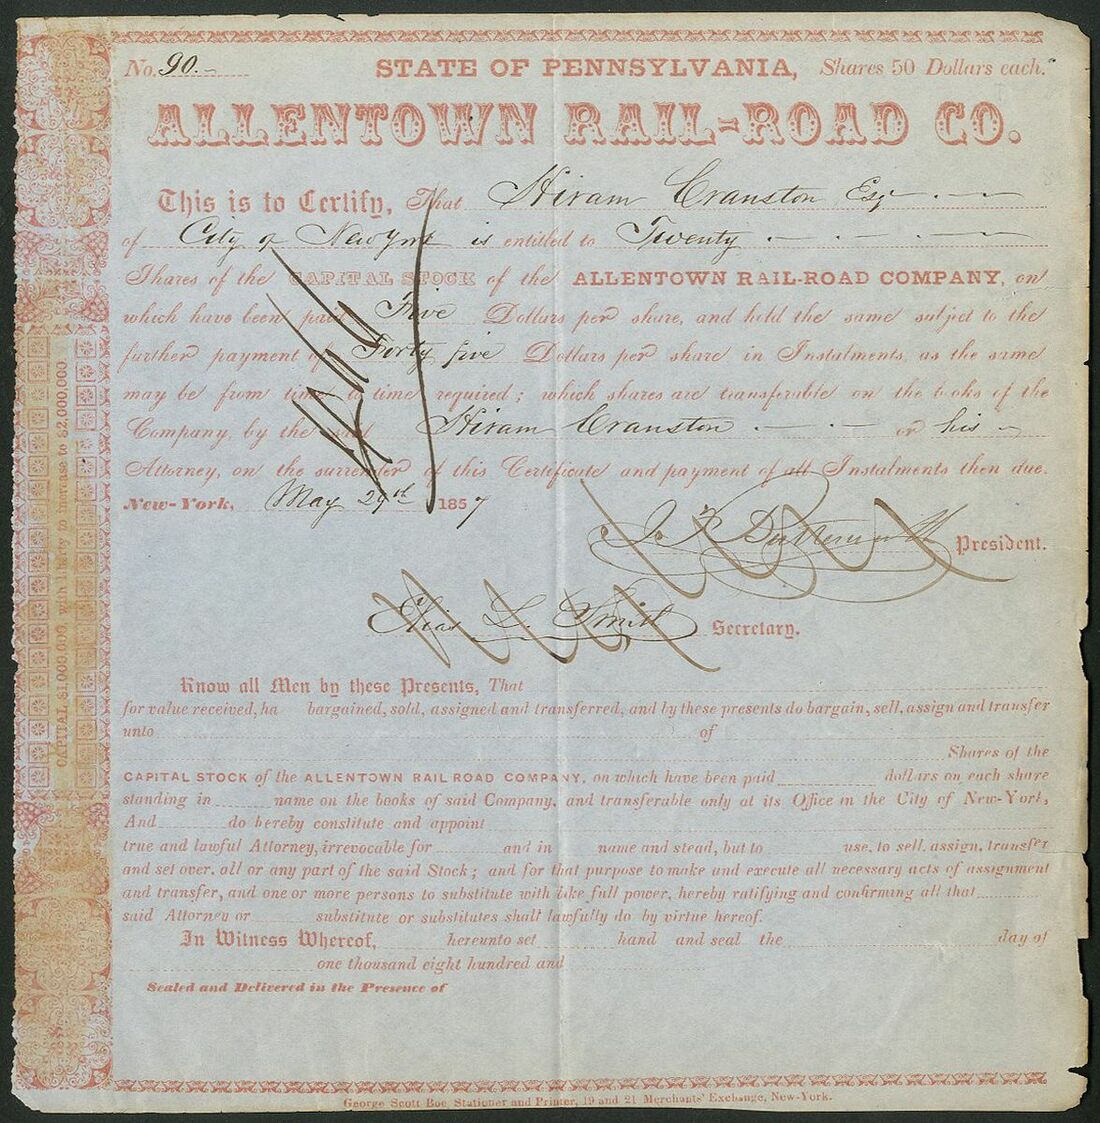 No. 90.- STATE OF PENNSYLVANIA, Shares 50 Dollars each.
ALLENTOWN RAIL-ROAD CO.
This is to Certify, That Hiram Cranston Esq
of City of New York is entitled to Twenty
Shares of the CAPITAL STOCK of the ALLENTOWN RAIL-ROAD COMPANY, on
which have been paid Five Dollars per share, and hold the same subject to the
further payment of Forty five Dollars per share in Instalments, as the same
may be from time to time required; which shares are transferable on the books of the
Company, by the said Hiram Cranston or his
Attorney, on the surrender of this Certificate and payment of all Instalments then due.
New-York, May 29th 1857
J. F. Butterworth President.
Elias L. Smith Secretary.
Know all Men by these Presents, That
for value received, ha bargained, sold, assigned and transferred, and by these presents do bargain, sell, assign and transfer
unto of
Shares of the
CAPITAL STOCK of the ALLENTOWN RAIL ROAD COMPANY, on which have been paid dollars on each share
standing in name on the books of said Company, and transferable only at its Office in the City of New-York,
And do hereby constitute and appoint
true and lawful Attorney, irrevocable for and in name and stead, but to use, to sell, assign, transfer
and set over, all or any part of the said Stock; and for that purpose to make and execute all necessary acts of assignment
and transfer, and one or more persons to substitute with like full power, hereby ratifying and confirming all that
said Attorney or substitute or substitutes shall lawfully do by virtue hereof.
In Witness Whereof, hereunto set hand and seal the day of
one thousand eight hundred and
Sealed and Delivered in the Presence of
George Scott Roe, Stationer and Printer, 19 and 21 Merchants' Exchange, New-York.
CAPITAL, $1,000,000, with liberty to increase to $2,000,000